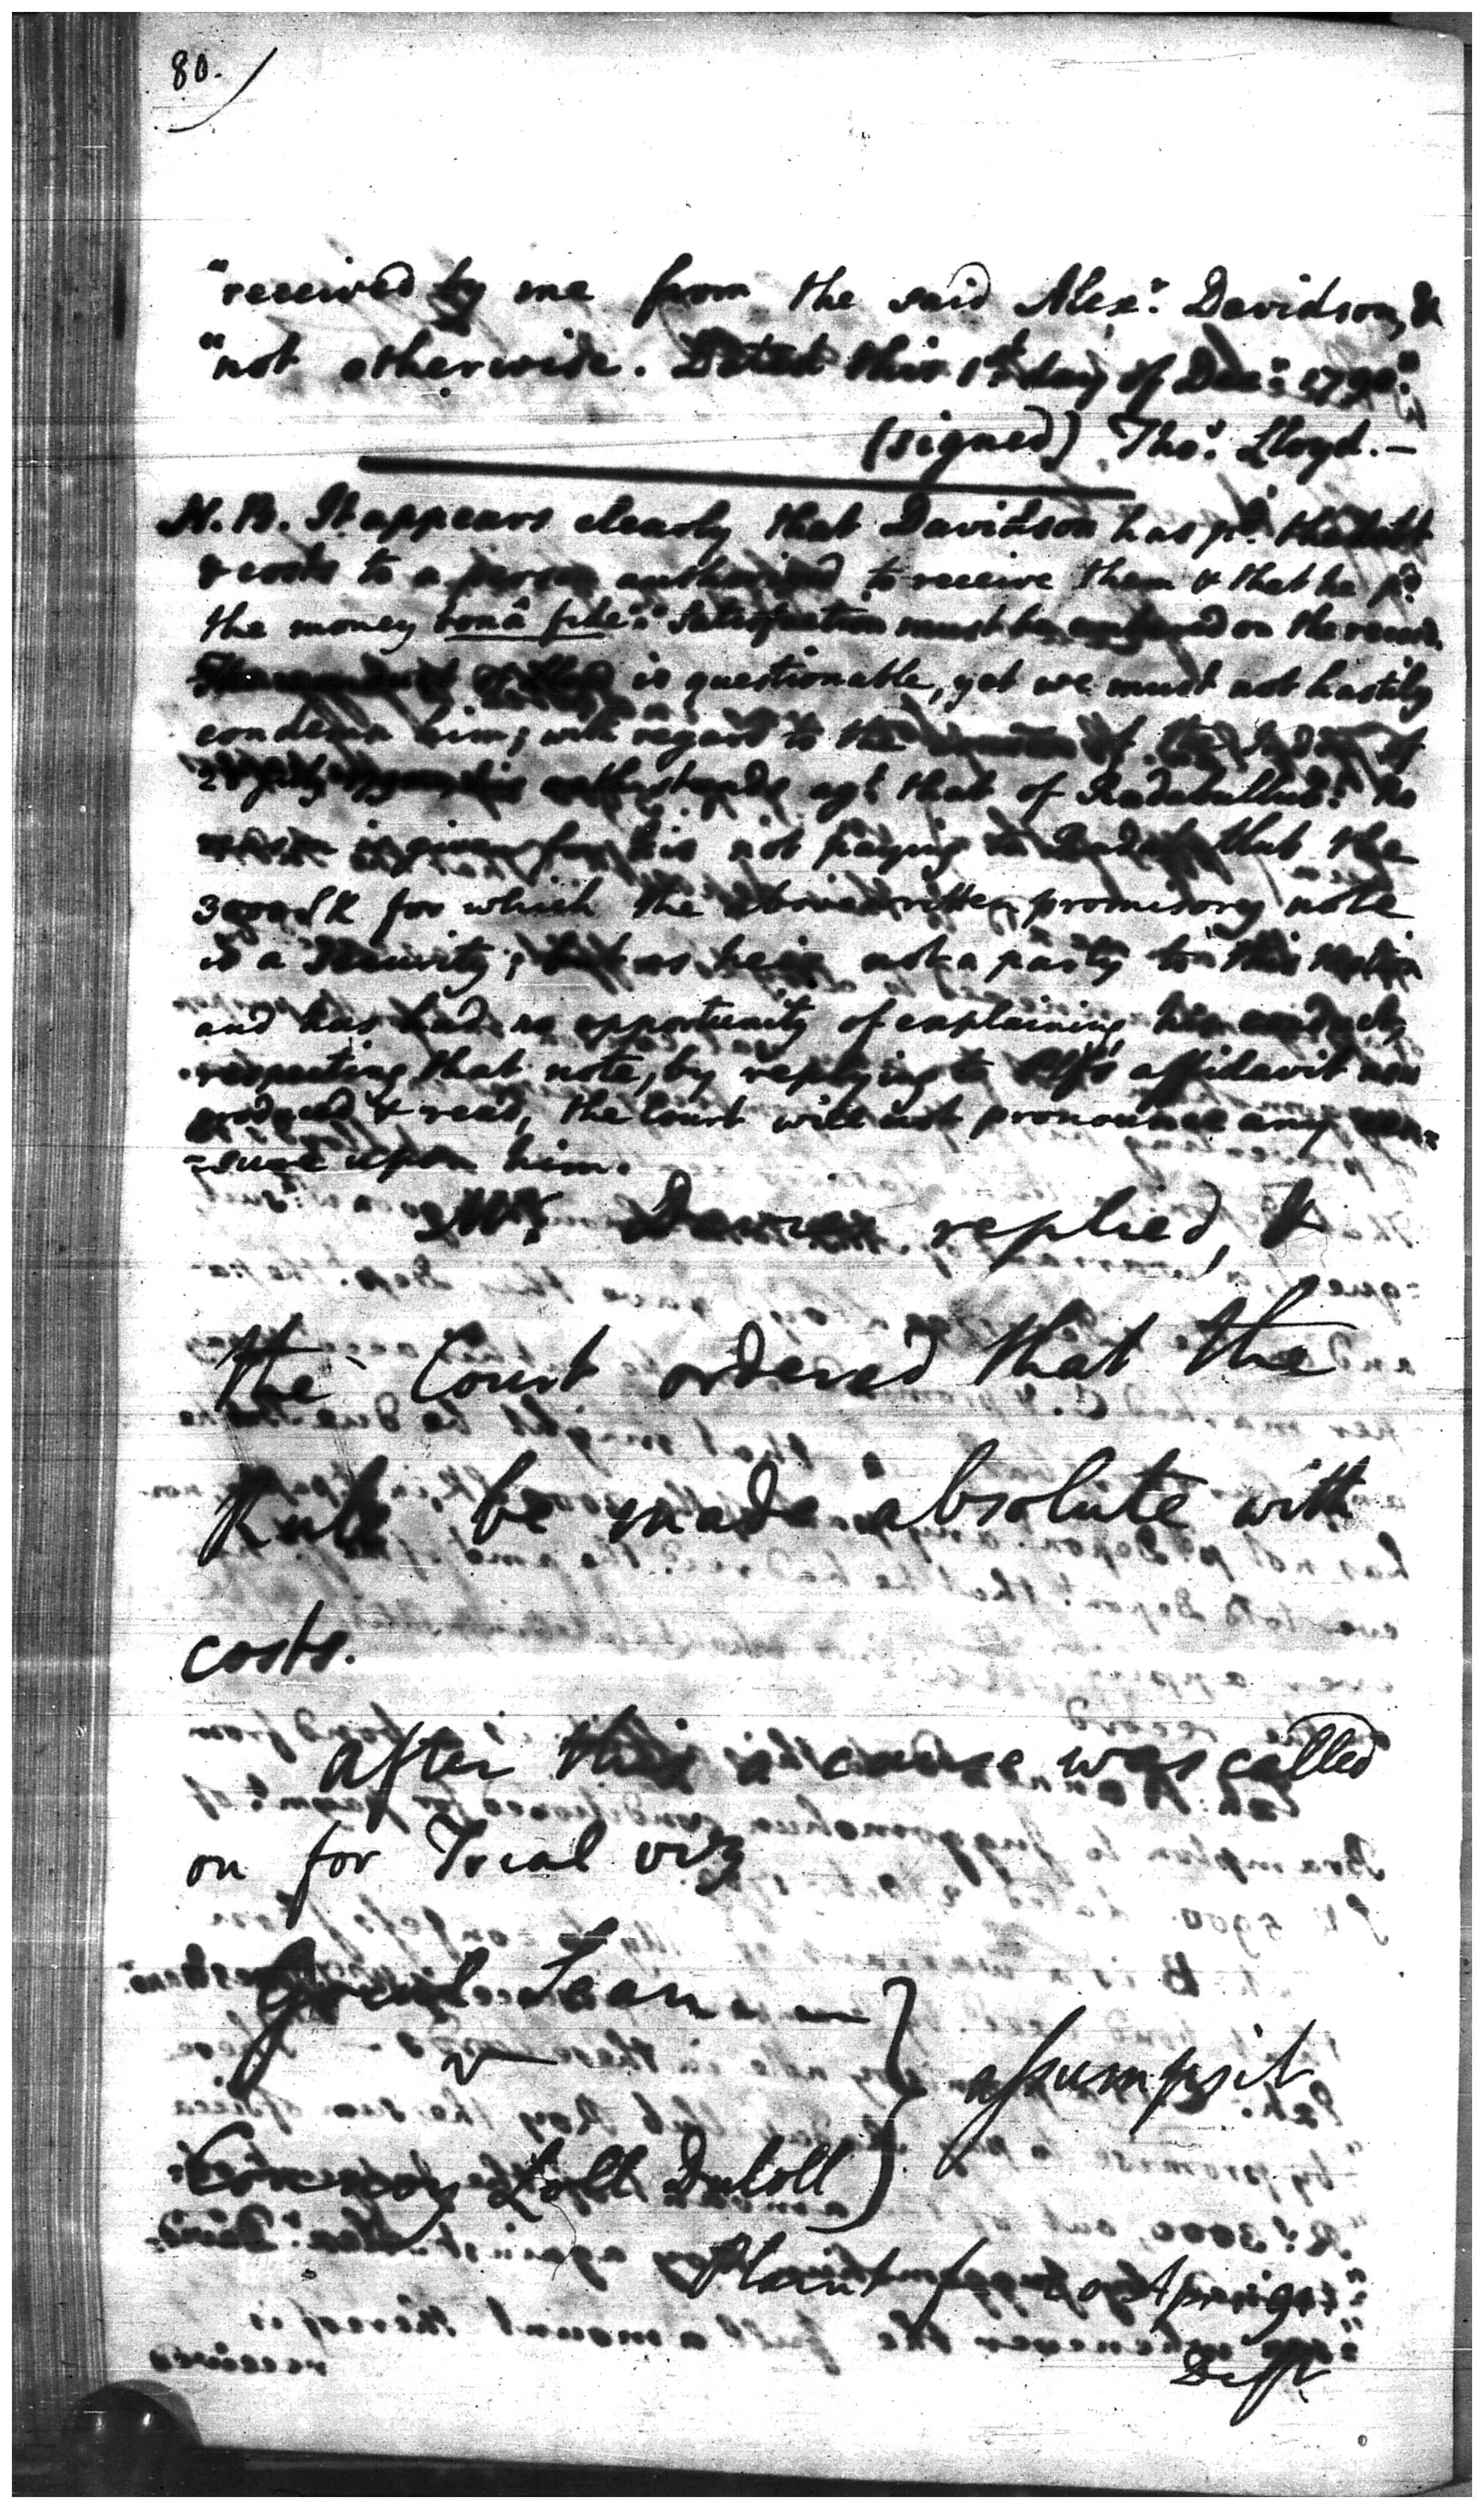 80.
"received by me from the said Alexr. Davidson, &
"not otherwise. Dated this 1st day of Decr. 1790."
(signed) Thos. Lloyd.—
N.B. It appears clearly that Davidson has pd. the debt
& costs to a person authorised to receive them & that he pd.
the money bonâ fide: Satisfaction must be entered on the record.
is questionable, yet we must not hastily
condemn him; with regard to the
agt. that of Radabullub: no
reason is given for his not paying to that the
3000 SR for which the abovewritten promissory note
is a Security; but as he is not a party to this motion
and has had no opportunity of explaining his conduct,
respecting that note, by replying to affidavit now
produced & read, the Court will not pronounce any cen-
-sure upon him.
Mr. replied, &
the Court ordered that the
Rule be made absolute with
costs.
After this a cause was called
on for Trial viz
Loan
v
Loll Dutt
} assumpsit
Plaint
Deft